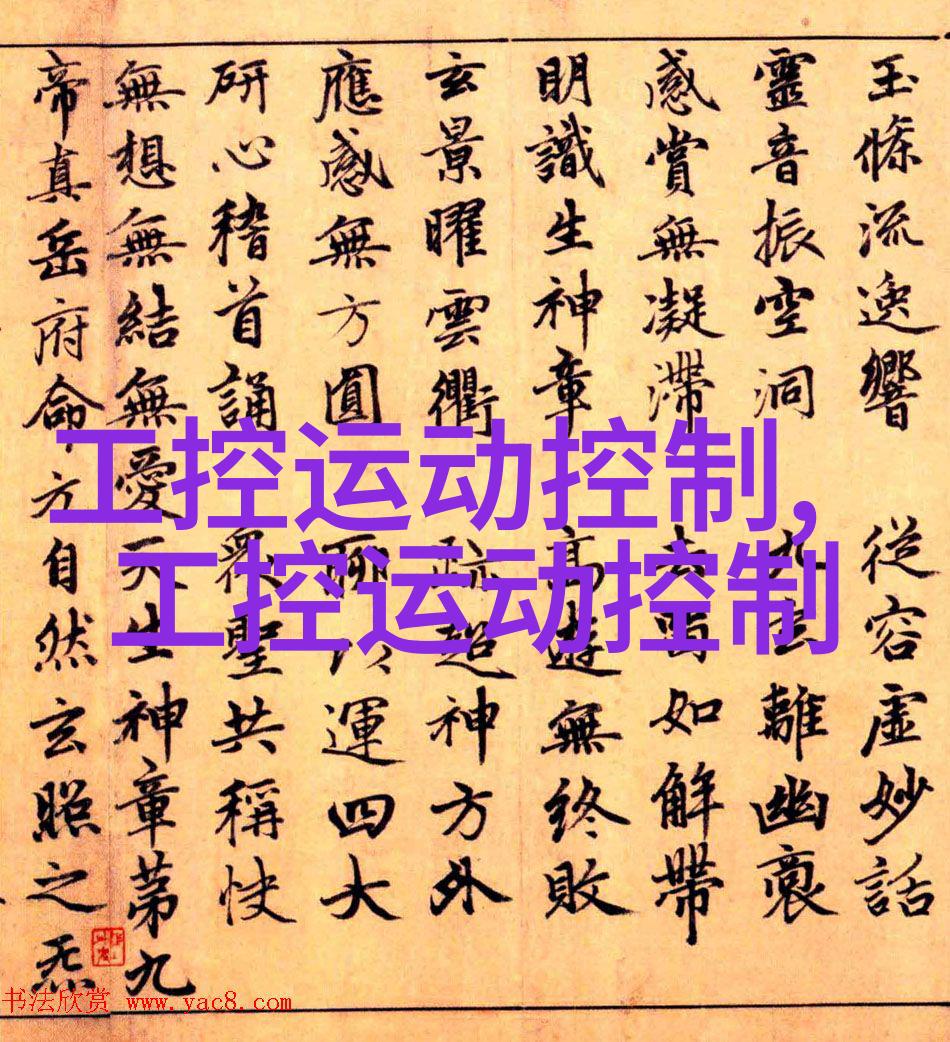 玉條流逸響 從容虛妙話
靈音振空洞 九玄離幽裔
感賞無凝滯 去留如解帶
明識生神章 高遊無終敗
玄景曜雲衢 跡超神方外
應感無方圓 聊以運四大
研心稽首誦 衆聖共稱快
無想無結無愛天生神章第九
帝真岳府命方自然玄照之炁
工控运动控制,
工控运动控制
书法欣赏 www.yac8.com